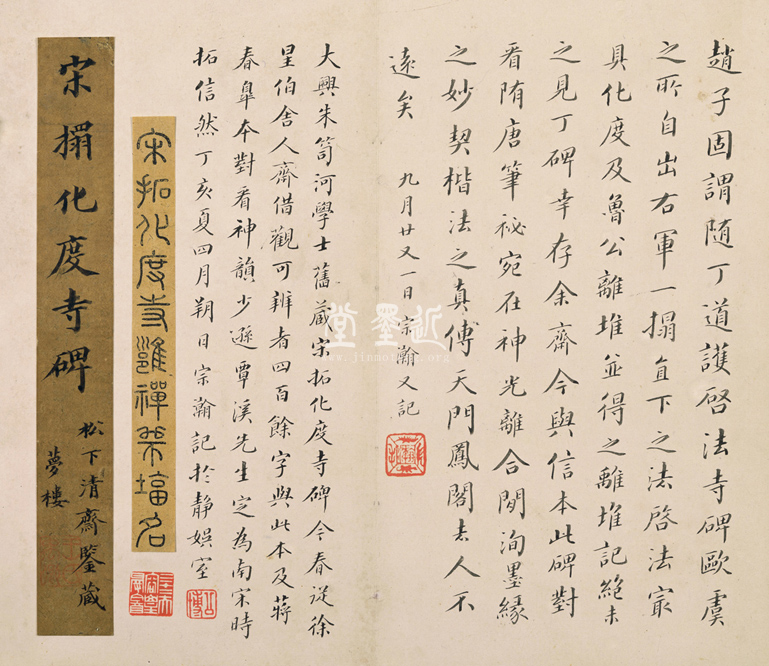 趙子固謂隨丁道護啓法寺碑歐虞
之所自出右軍一搨直下之法啓法宸
具化度及魯公離堆並得之離堆記絕未
之見丁碑幸存余齋今與信本此碑對
看隋唐筆祕宛在神光離合間洵墨緣
之妙契楷法之真傳天門鳳閣去人不
遠矣 九月廿又一日宗瀚又記
大興朱笥河學士舊藏宋拓化度寺碑今春從徐
星伯舍人齋借觀可辨者四百餘字與此本及蔣
春皐本對看神韻少遜覃溪先生定為南宋時
拓信然丁亥夏四月朔日宗瀚記於靜娛室
宋拓化度寺邕禪師塔銘
宋搨化度寺碑
松下清齋鑒藏
夢樓
近墨堂
www.jinmotang.org